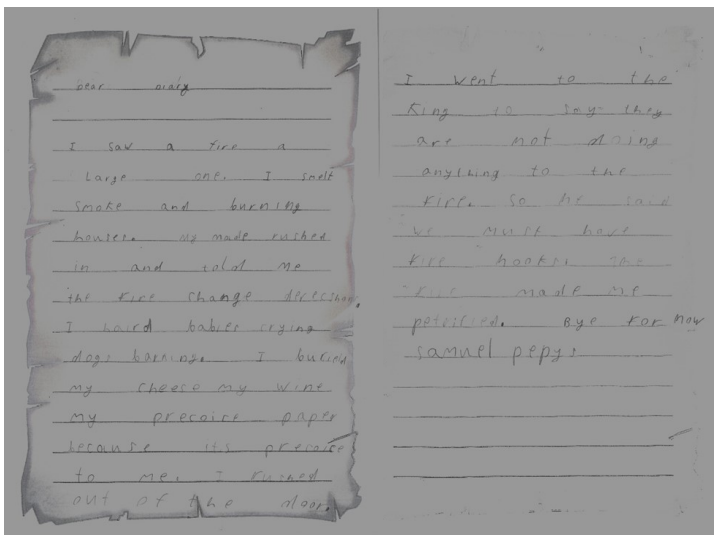 Dear Diary
I saw a fire a
Large one. I smelt
smoke and burning
houses. My made rushed
in and told me
the fire change derecshon.
I haird babies crying
dogs barning. I buried
my cheese my wine
my precoice paper
because its precoice
to me. I rushed
out of the door.
I went to the
King to sey they
are not doing
anything to the
Fire. So he said
we must have
Fire hooks. The
Fire made me
petrified. Bye For now
samuel pepys